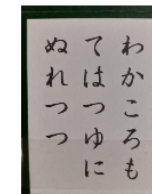 わかころも
てはつゆに
ぬれつつ